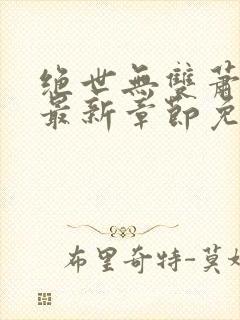 絕世無雙蕭
最新章節免
布里奇特-莫